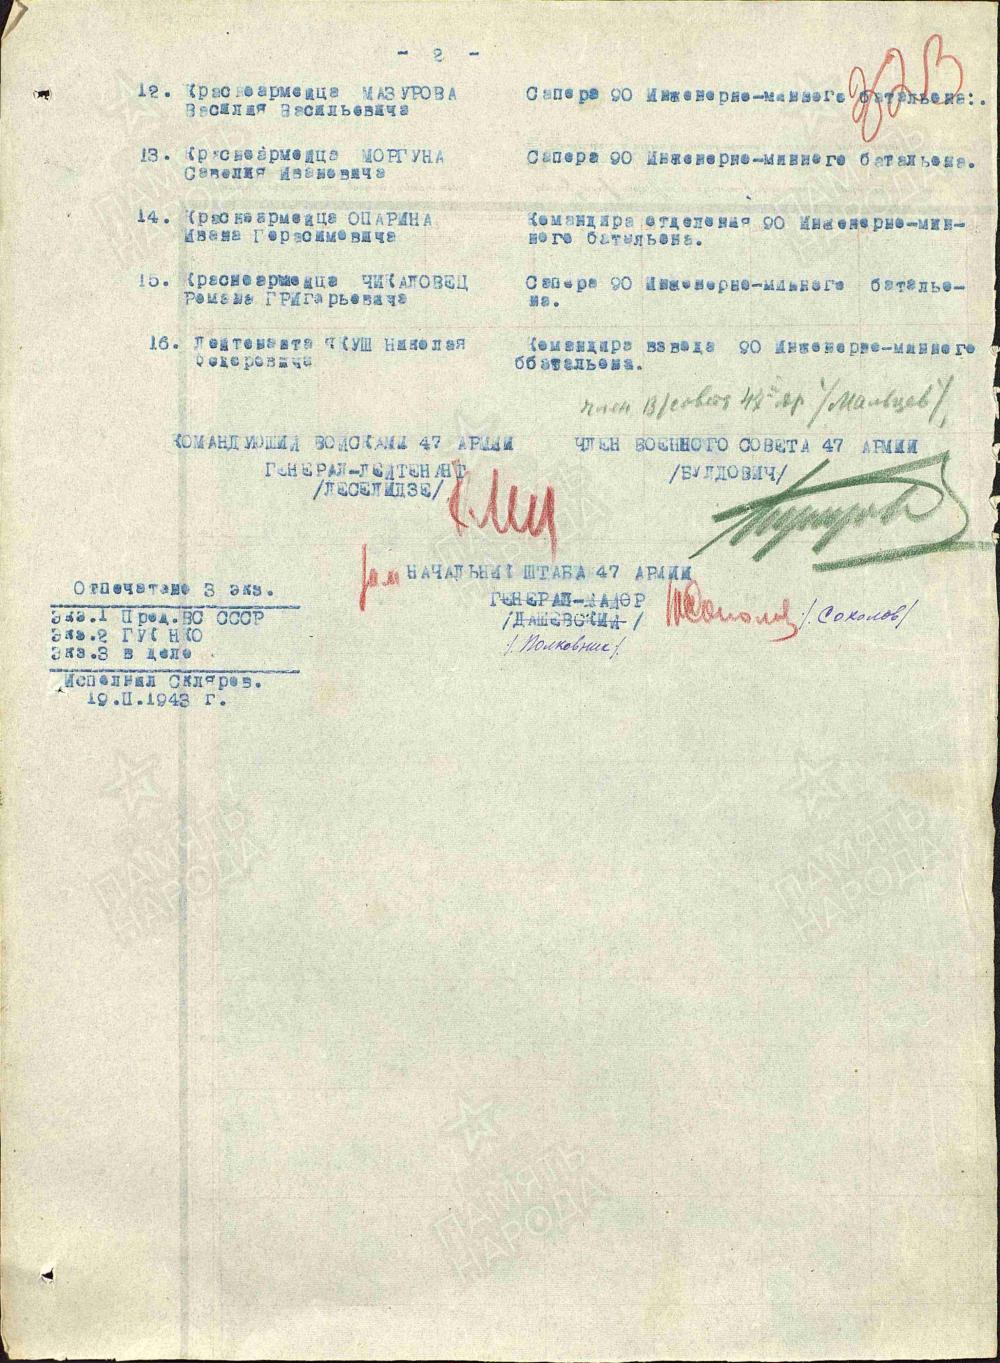 - 2 -
12. Красноармейца МАЗУРОВА Сапера 90 Инженерно-минного батальона:.
Василия Васильевича
13. Красноармейца МОРГУНА Сапера 90 Инженерно-минного батальона.
Савелия Ивановича
14. Красноармейца ОПАРИНА Командира отделения 90 Инженерно-мин-
Ивана Герасимовича ного батальона.
15. Красноармейца ЧИКАЛОВЕЦ Сапера 90 Инженерно-минного батальо-
Романа ГРИгарьевича на.
16. Лейтенанта ЯКУШ Николая Командира взвода 90 Инженерно-минного
Федоровича ббатальона.
член В/совета 47 /Мальцев/
КОМАНДУЮЩИЙ ВОЙСКАМИ 47 АРМИИ ЧЛЕН ВОЕННОГО СОВЕТА 47 АРМИИ
ГЕНЕРАЛ-ЛЕЙТЕНАНТ /БУЛДОВИЧ/
/ЛЕСЕЛИДЗЕ/
зам НАЧАЛЬНИК ШТАБА 47 АРМИИ
ГЕНЕРАЛ-МАЙОР
/ДАШЕВСКИЙ/ /Соколов/
/Полковник/.
Отпечатано 3 экз.
Экз.1 През.ВС СССР
Экз.2 ГУК НКО
Экз.3 в дело
Исполнил Скляров.
19.II.1943 г.
ПАМЯТЬ НАРОДА